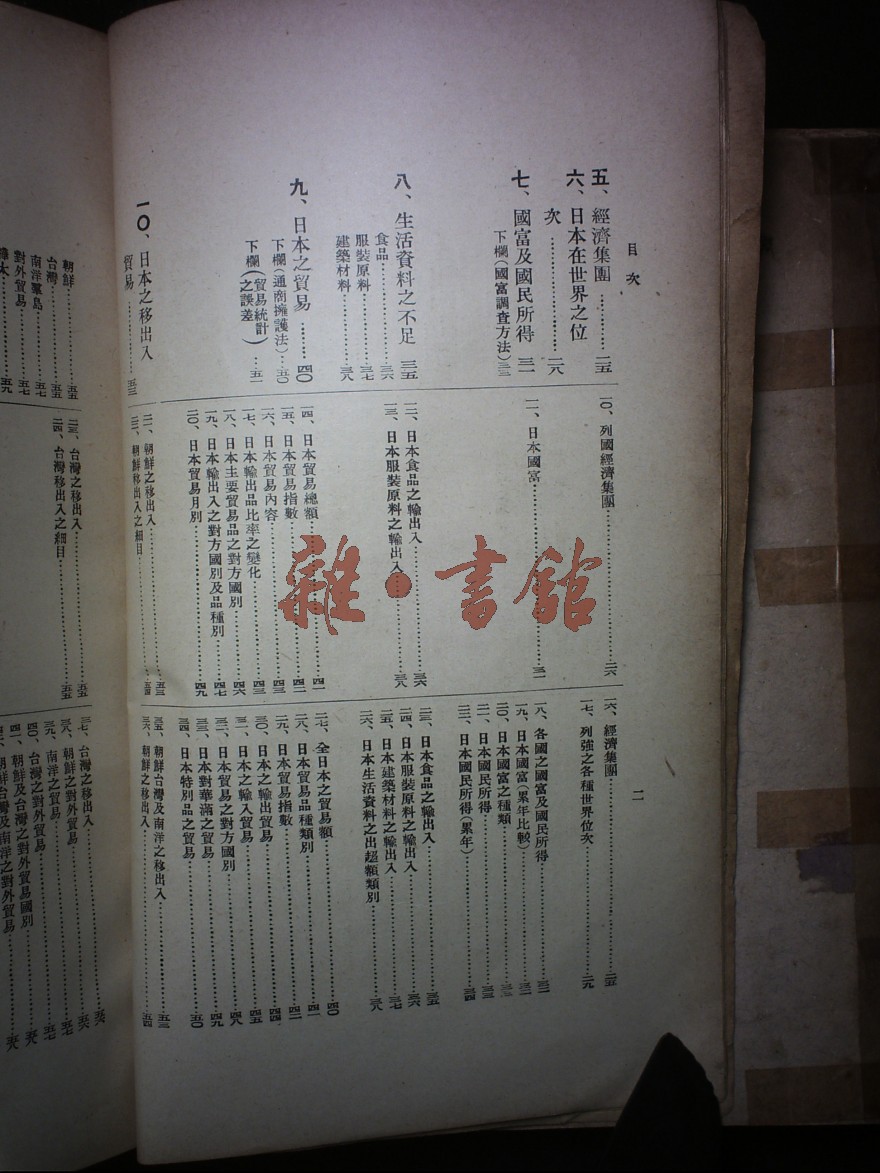 目次
五、經濟集團…………二五
六、日本在世界之位
次…………二八
七、國富及國民所得 三一
下欄(國富調查方法)三三
八、生活資料之不足 三五
食品…………三六
服裝原料…………三七
建築材料…………三八
九、日本之貿易……四〇
下欄(通商擁護法)…五〇
下欄(貿易統計之誤差)…五一
一〇、日本之移出入
貿易…………五三
朝鮮…………五五
台灣…………五五
南洋羣島…………五七
對外貿易…………五七
一〇、列國經濟集團…………二六
一一、日本國富…………三一
一二、日本食品之輸出入…………三六
一三、日本服裝原料之輸出入…………三八
一四、日本貿易總額…………四一
一五、日本貿易指數…………四二
一六、日本貿易內容…………四三
一七、日本輸出品比率之變化…………四三
一八、日本主要貿易品之對方國別…………四六
一九、日本輸出入之對方國別及品種別…………四七
二〇、日本貿易月別…………四九
二一、朝鮮之移出入…………五三
二二、朝鮮移出入之細目…………五四
二三、台灣之移出入…………五五
二四、台灣移出入之細目…………五五
一六、經濟集團…………二五
一七、列強之各種世界位次…………二九
一八、各國之國富及國民所得…………三一
一九、日本國富(累年比較)…………三二
二〇、日本國富之種類…………三三
二一、日本國民所得…………三三
二二、日本國民所得(累年)…………三四
二三、日本食品之輸出入…………三五
二四、日本服裝原料之輸出入…………三六
二五、日本建築材料之輸出入…………三七
二六、日本生活資料之出超額類別…………三八
二七、全日本之貿易額…………四〇
二八、日本貿易品種類別…………四一
二九、日本貿易指數…………四二
三〇、日本之輸出貿易…………四四
三一、日本之輸入貿易…………四五
三二、日本貿易之對方國別…………四八
三三、日本對華滿之貿易…………四九
三四、日本特別品之貿易…………五〇
三五、朝鮮台灣及南洋之移出入…………五三
三六、朝鮮之移出入…………五四
三七、台灣之移出入…………五六
三八、朝鮮之對外貿易…………五七
三九、南洋之貿易…………五七
四〇、台灣之對外貿易…………五八
四一、朝鮮及台灣之對外貿易國別…………五八
朝鮮台灣及南洋之對外貿易
二
雜·書館